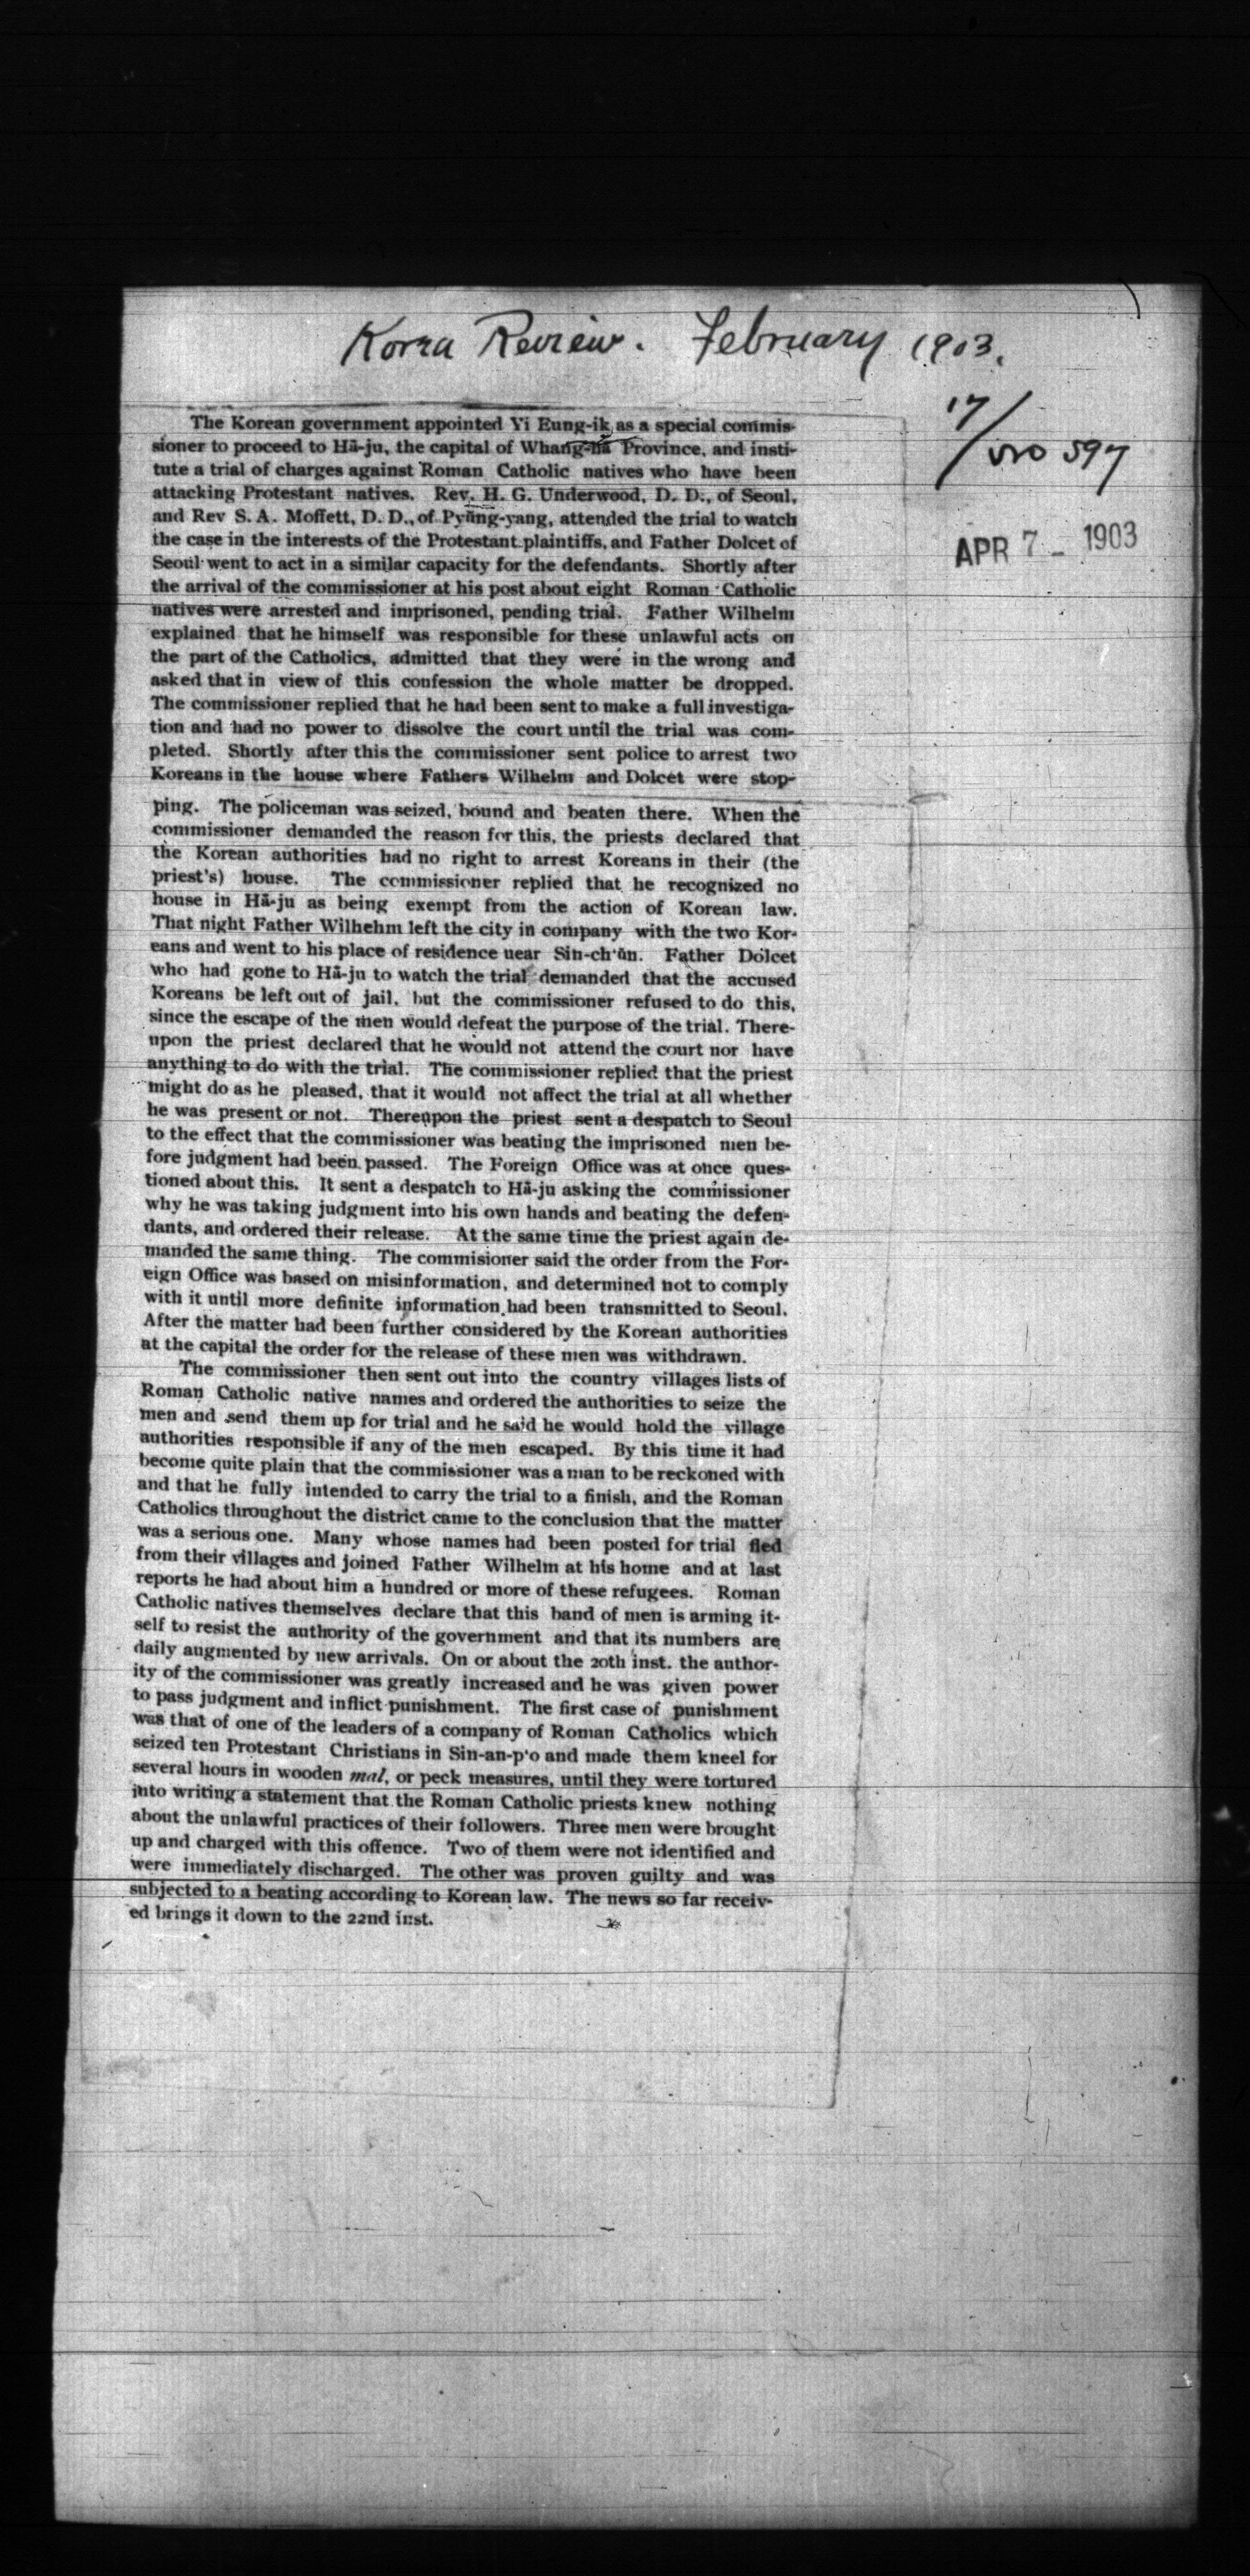 Korea Review. February 1903.
17/ 597
APR 7 - 1903
The Korean government appointed Yi Eung-ik as a special commis-
sioner to proceed to Hă-ju, the capital of Whang-hă Province, and insti-
tute a trial of charges against Roman Catholic natives who have been
attacking Protestant natives. Rev. H. G. Underwood, D. D., of Seoul,
and Rev S. A. Moffett, D. D., of Pyŭng-yang, attended the trial to watch
the case in the interests of the Protestant plaintiffs, and Father Dolcet of
Seoul went to act in a similar capacity for the defendants. Shortly after
the arrival of the commissioner at his post about eight Roman Catholic
natives were arrested and imprisoned, pending trial. Father Wilhelm
explained that he himself was responsible for these unlawful acts on
the part of the Catholics, admitted that they were in the wrong and
asked that in view of this confession the whole matter be dropped.
The commissioner replied that he had been sent to make a full investiga-
tion and had no power to dissolve the court until the trial was com-
pleted. Shortly after this the commissioner sent police to arrest two
Koreans in the house where Fathers Wilhelm and Dolcet were stop-
ping. The policeman was seized, bound and beaten there. When the
commissioner demanded the reason for this, the priests declared that
the Korean authorities had no right to arrest Koreans in their (the
priest's) house. The commissioner replied that he recognized no
house in Hă-ju as being exempt from the action of Korean law.
That night Father Wilhelm left the city in company with the two Kor-
eans and went to his place of residence near Sin-ch'ŭn. Father Dolcet
who had gone to Hă-ju to watch the trial demanded that the accused
Koreans be left out of jail, but the commissioner refused to do this,
since the escape of the men would defeat the purpose of the trial. There-
upon the priest declared that he would not attend the court nor have
anything to do with the trial. The commissioner replied that the priest
might do as he pleased, that it would not affect the trial at all whether
he was present or not. Thereupon the priest sent a despatch to Seoul
to the effect that the commissioner was beating the imprisoned men be-
fore judgment had been passed. The Foreign Office was at once ques-
tioned about this. It sent a despatch to Hă-ju asking the commissioner
why he was taking judgment into his own hands and beating the defen-
dants, and ordered their release. At the same time the priest again de-
manded the same thing. The commisioner said the order from the For-
eign Office was based on misinformation, and determined not to comply
with it until more definite information had been transmitted to Seoul.
After the matter had been further considered by the Korean authorities
at the capital the order for the release of these men was withdrawn.
The commissioner then sent out into the country villages lists of
Roman Catholic native names and ordered the authorities to seize the
men and send them up for trial and he said he would hold the village
authorities responsible if any of the men escaped. By this time it had
become quite plain that the commissioner was a man to be reckoned with
and that he fully intended to carry the trial to a finish, and the Roman
Catholics throughout the district came to the conclusion that the matter
was a serious one. Many whose names had been posted for trial fled
from their villages and joined Father Wilhelm at his home and at last
reports he had about him a hundred or more of these refugees. Roman
Catholic natives themselves declare that this band of men is arming it-
self to resist the authority of the government and that its numbers are
daily augmented by new arrivals. On or about the 20th inst. the author-
ity of the commissioner was greatly increased and he was given power
to pass judgment and inflict punishment. The first case of punishment
was that of one of the leaders of a company of Roman Catholics which
seized ten Protestant Christians in Sin-an-p'o and made them kneel for
several hours in wooden mal, or peck measures, until they were tortured
into writing a statement that the Roman Catholic priests knew nothing
about the unlawful practices of their followers. Three men were brought
up and charged with this offence. Two of them were not identified and
were immediately discharged. The other was proven guilty and was
subjected to a beating according to Korean law. The news so far receiv-
ed brings it down to the 22nd inst.